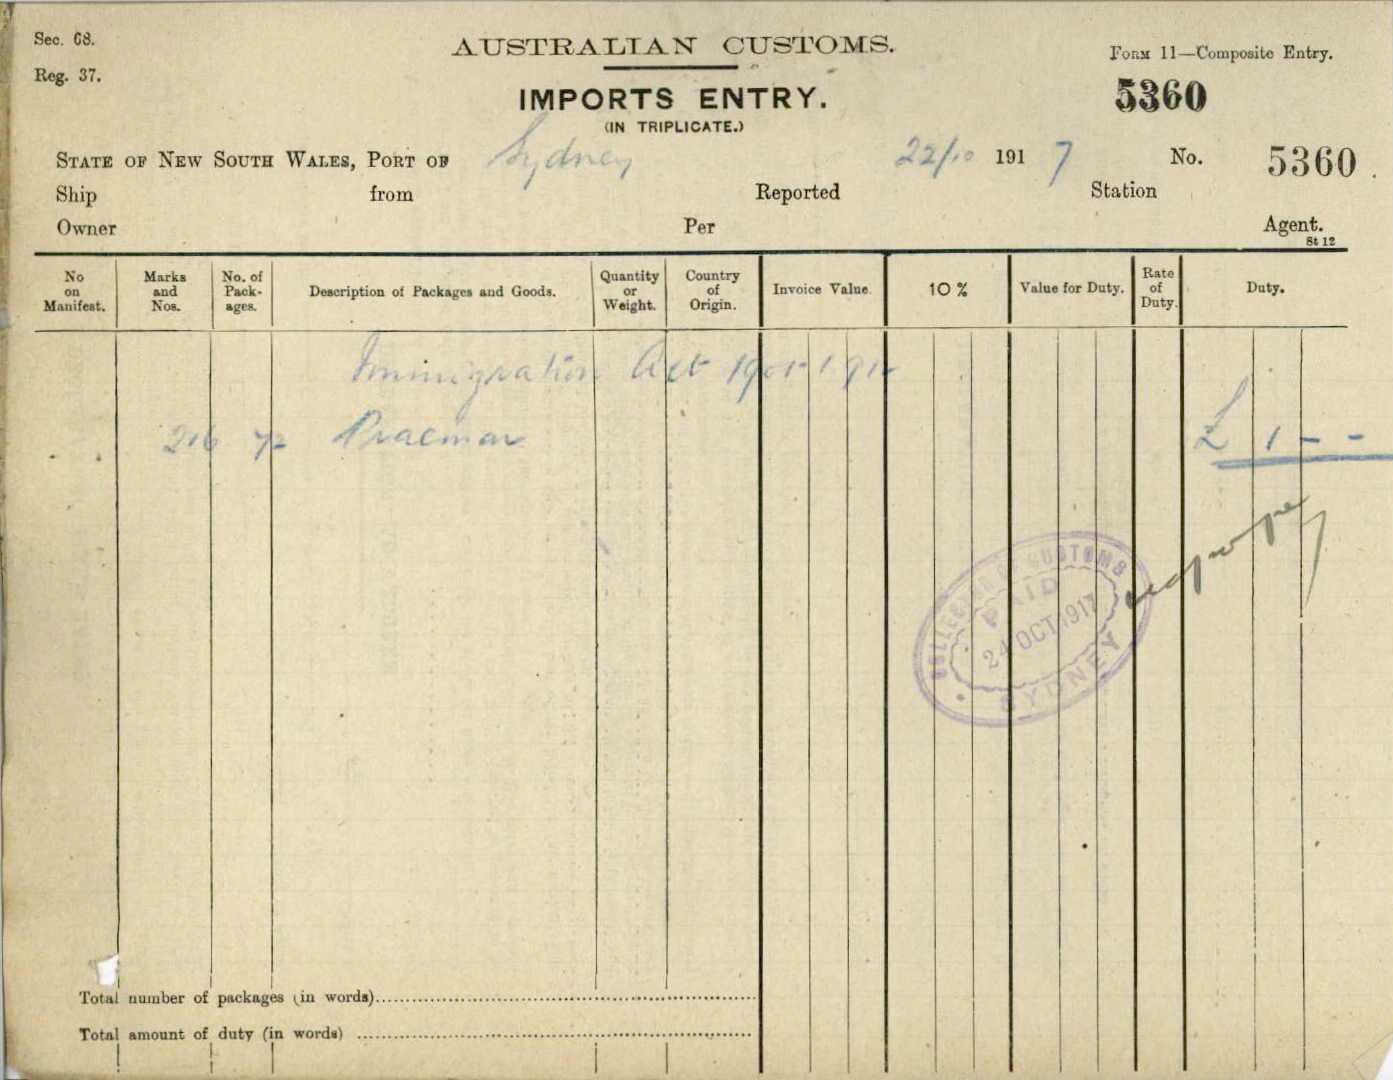 Sec. 68.
Reg. 37.
AUSTRALIAN CUSTOMS.
Form 11—Composite Entry.
5360
IMPORTS ENTRY.
(IN TRIPLICATE.)
State of New South Wales, Port of Sydney 22/10 1917 No. 5360
Ship from Reported Station
Owner Per Agent.
St 12
No on Manifest. Marks and Nos. No. of Pack-ages. Description of Packages and Goods. Quantity or Weight. Country of Origin. Invoice Value 10 % Value for Duty. Rate of Duty. Duty.
Immigration Act 1901-1912
216 72 Braemar £ 1 - -
COLLECTOR OF CUSTOMS
PAID
24 OCT 1917
SYDNEY
Total number of packages (in words)
Total amount of duty (in words)